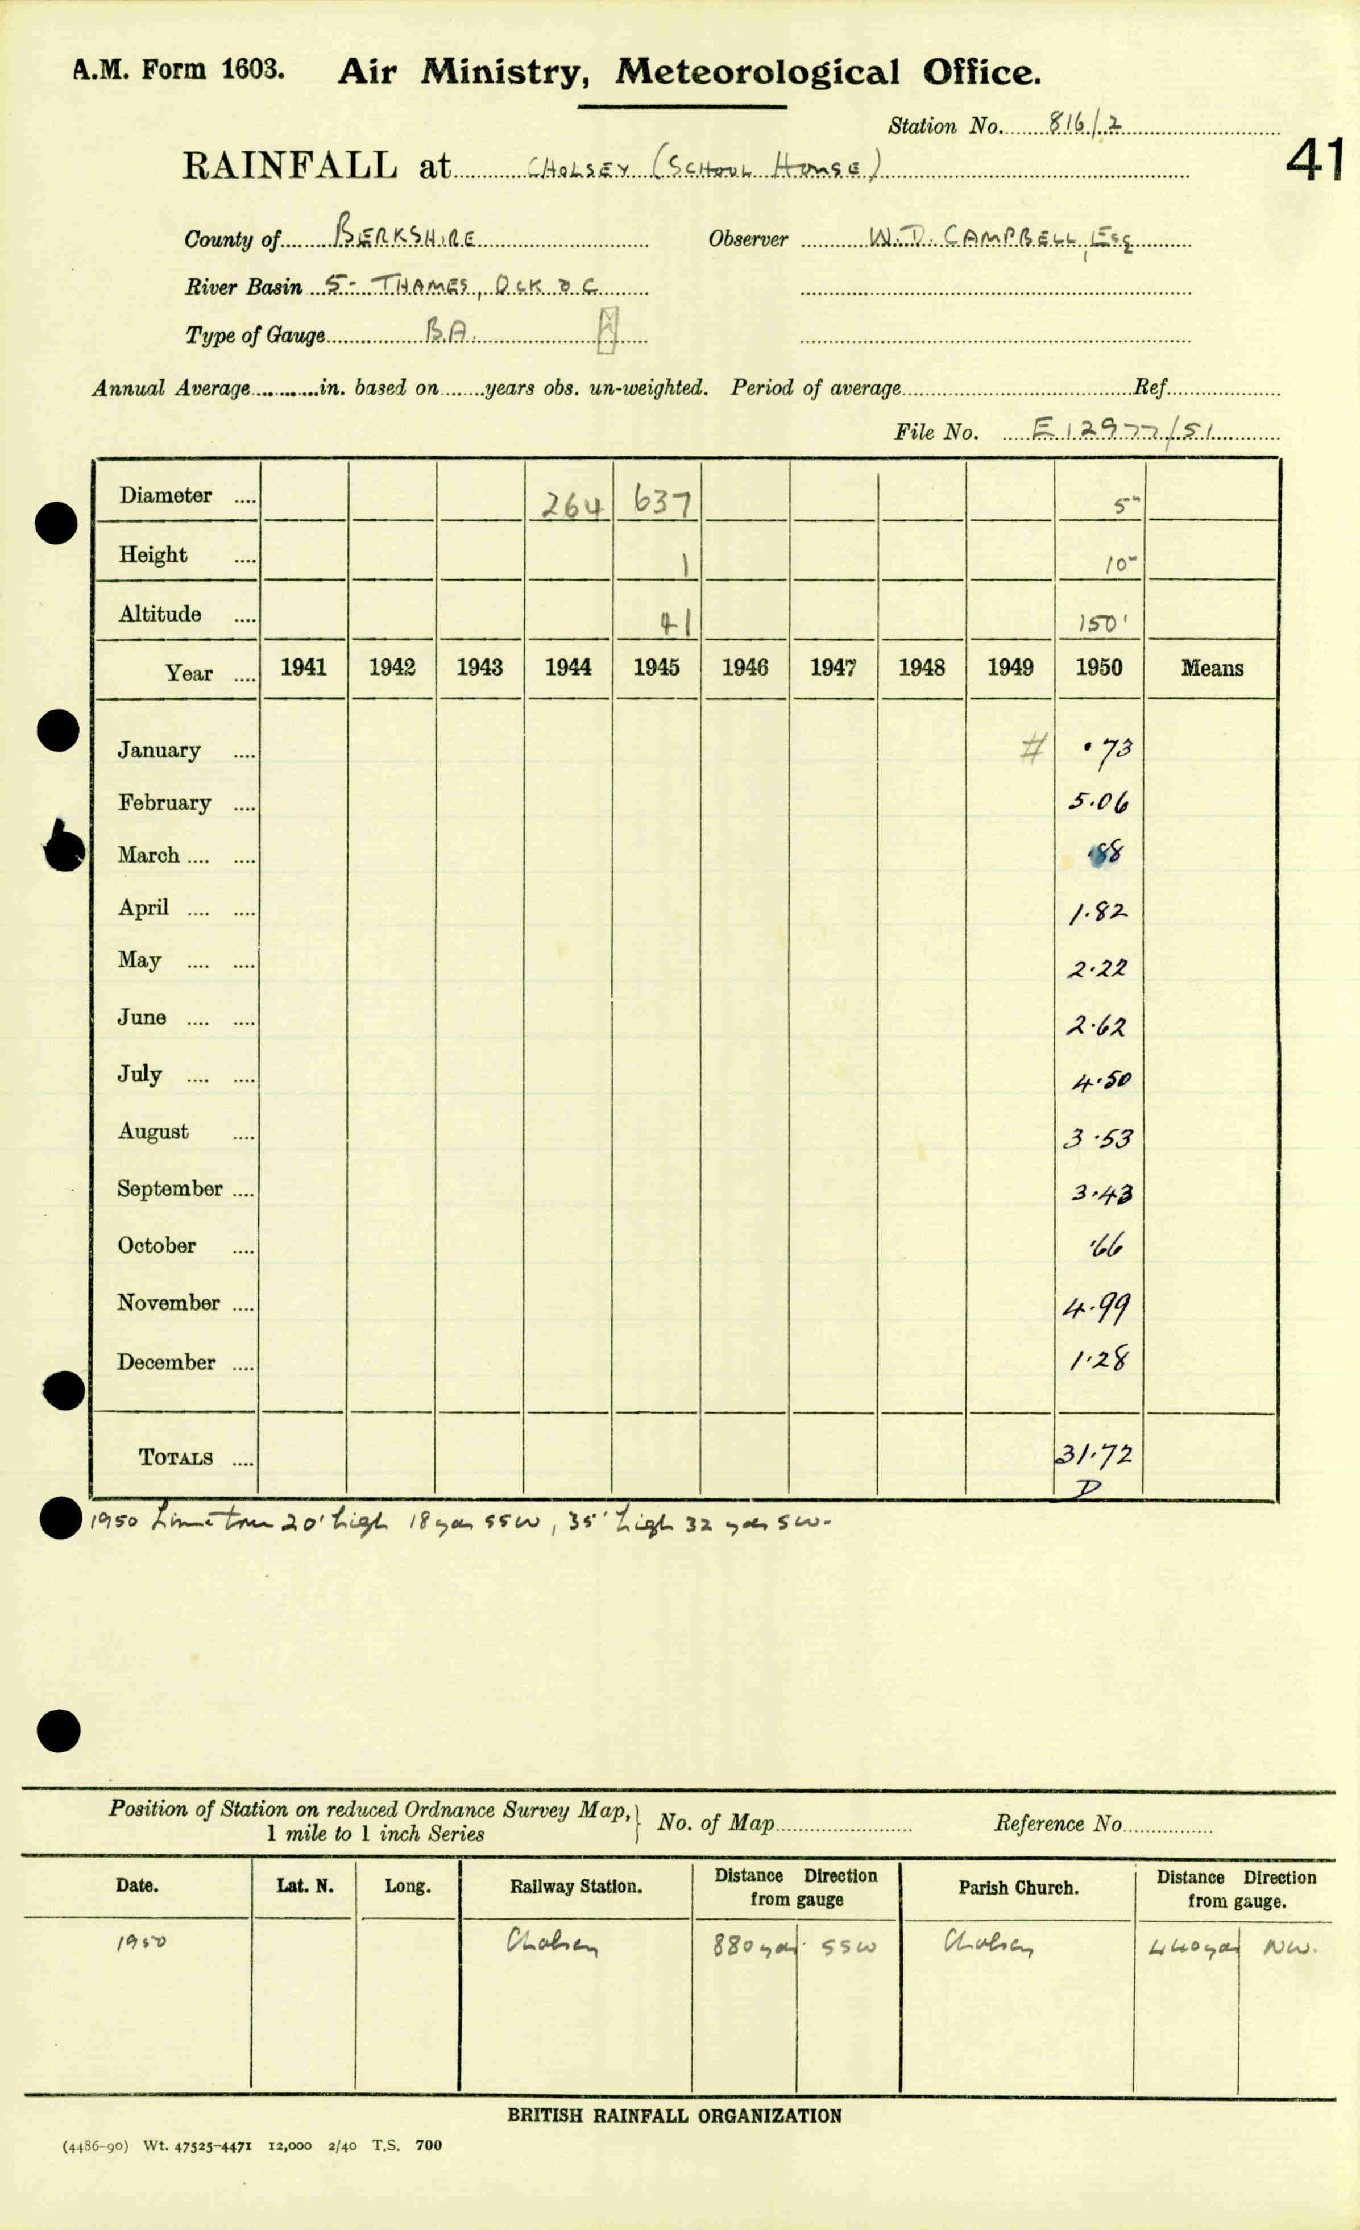 A.M. Form 1603. Air Ministry, Meteorological Office.
Station No. 816/2
41
RAINFALL at CHOLSEY (SCHOOL HOUSE)
County of BERKSHIRE Observer W.D. CAMPBELL, Esq
River Basin 5- THAMES, OCK & C
Type of Gauge B.A.
Annual Average in. based on years obs. un-weighted. Period of average Ref.
File No. E12977/51
Diameter 264 637 5"
Height 1 10"
Altitude 41 150'
Year 1941 1942 1943 1944 1945 1946 1947 1948 1949 1950 Means
January # .73
February 5.06
March .88
April 1.82
May 2.22
June 2.62
July 4.50
August 3.53
September 3.43
October .66
November 4.99
December 1.28
TOTALS 31.72
D
1950 Lime tree 20' high 18 yds SSW, 35' high 32 yds SW-
Position of Station on reduced Ordnance Survey Map,} No. of Map Reference No.
1 mile to 1 inch Series
Date. Lat. N. Long. Railway Station. Distance Direction from gauge Parish Church. Distance Direction from gauge.
1950 Cholsey 880 yds SSW Cholsey 440 yds NW.
BRITISH RAINFALL ORGANIZATION
(4486-90) Wt. 47525-4471 12,000 2/40 T.S. 700